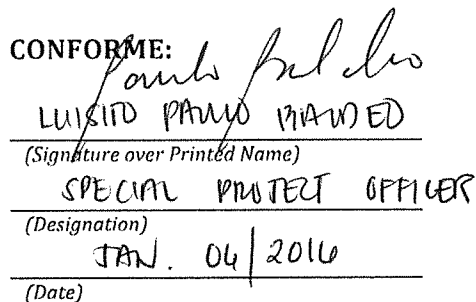 CONFORME:
LUISITO PAULO
(Signature over Printed Name)
SPECIAL PROJECT OFFICER
(Designation)
JAN. 04 2016
(Date)